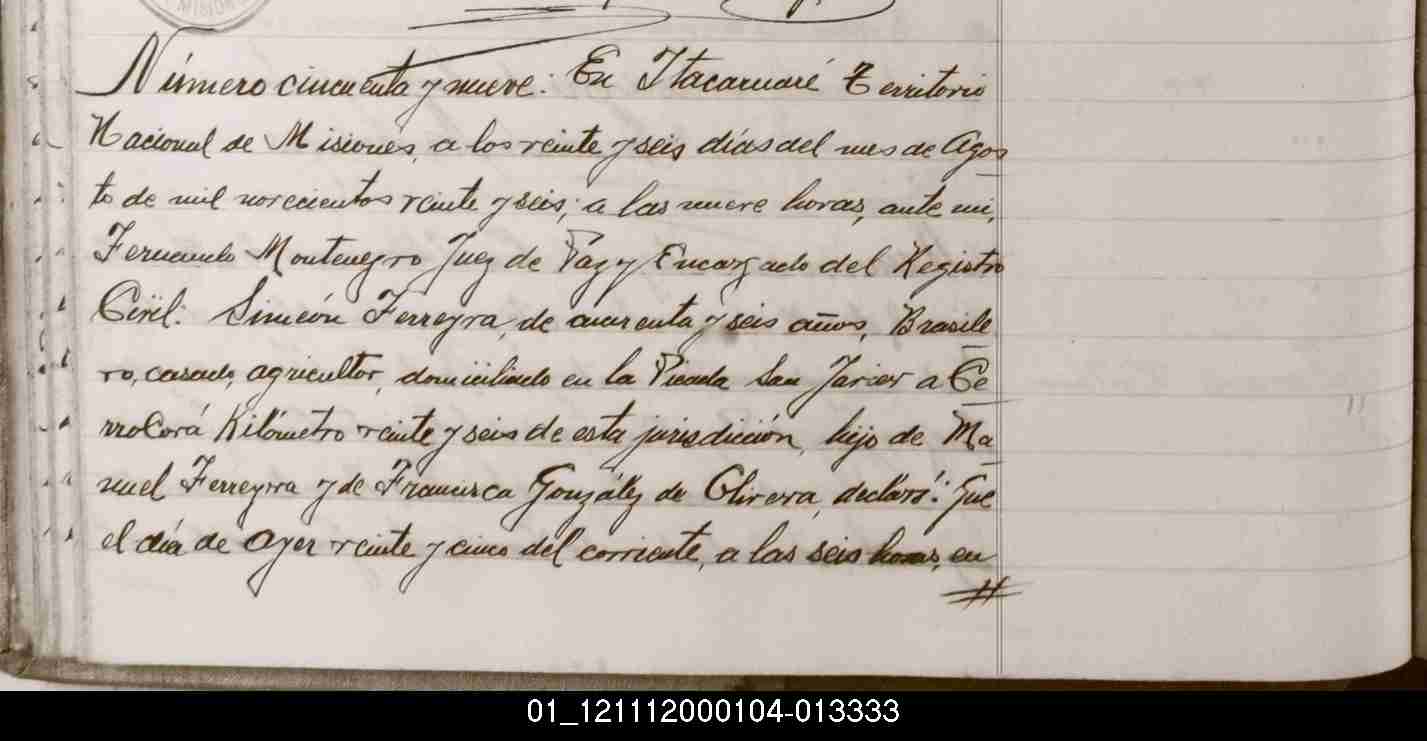 MISION
Número cincuenta y nueve: En Itacaruaré Territorio
Nacional de Misiones, a los veinte y seis días del mes de Agos
to de mil novecientos veinte y seis, a las nueve horas, ante mi,
Fernando Montenegro Juez de Paz y Encargado del Registro
Civil: Simeón Ferreyra, de cuarenta y seis años, Brasile
ro, casado, agricultor, domiciliado en la Picada San Javier a Ce
rro Corá Kilómetro veinte y seis de esta jurisdicción, hijo de Ma
nuel Ferreyra y de Francisca González de Olivera, declaró: Que
el día de ayer veinte y cinco del corriente, a las seis horas, en
01_121112000104-013333